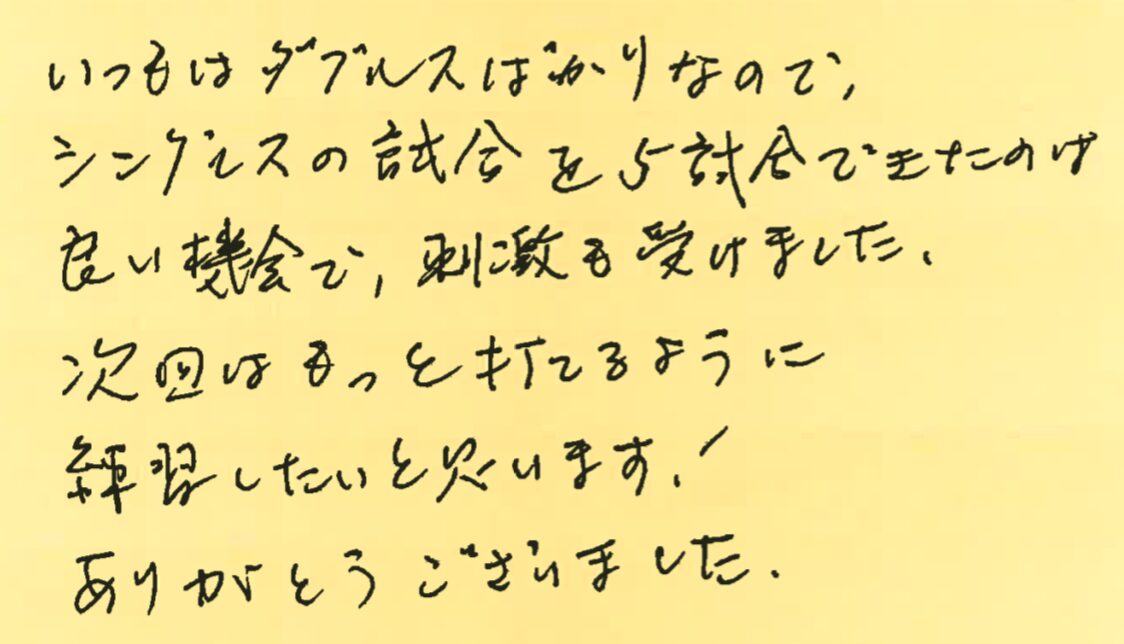 いつもはダブルスばかりなので,
シングルスの試合を5試合できたのは
良い機会で, 刺激も受けました.
次回はもっと打てるように
練習したいと思います!
ありがとうございました.